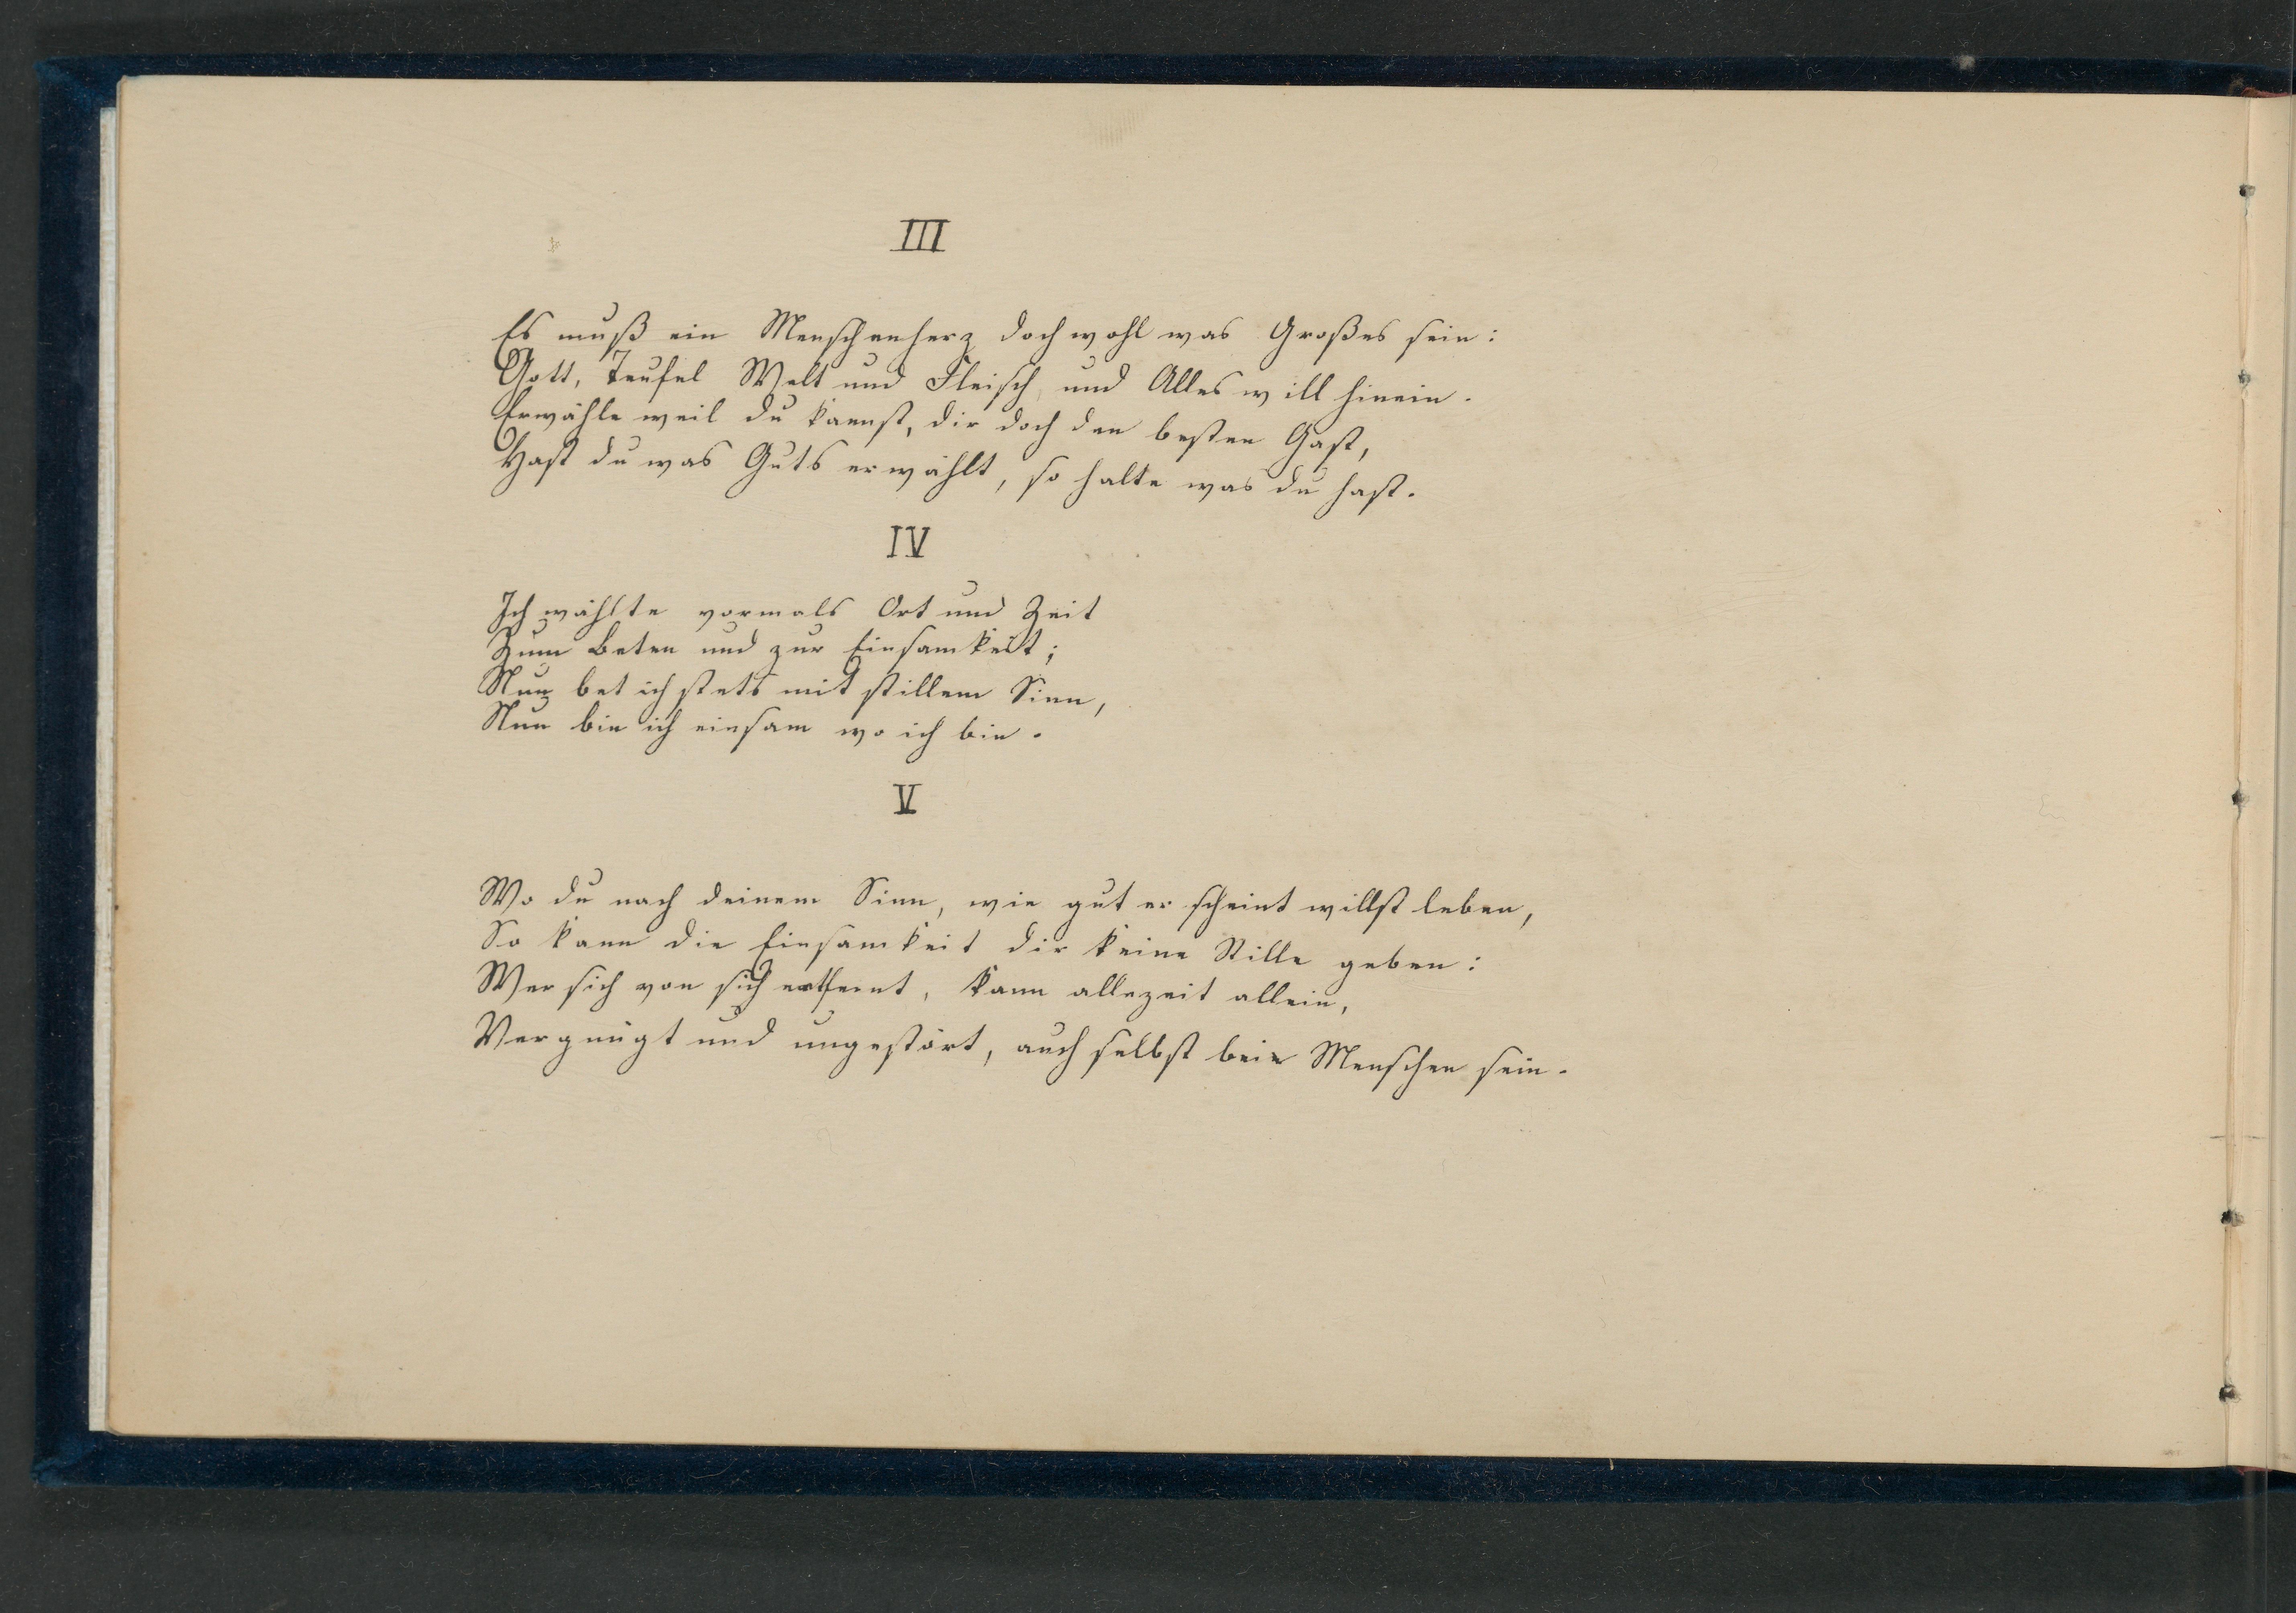 III
Es muß ein Menschenherz doch wohl was Großes sein:
Gott, Teufel Welt und Fleisch, und Alles will hinein.
Erwähle weil du kannst, dir doch den besten Gast,
Hast du was Guts erwählt, so halte was du hast.
IV
Ich wählte vormals Ort und Zeit
Zum Beten und zur Einsamkeit;
Nun bet ich stets mit stillem Sinn,
Nun bin ich einsam wo ich bin.
V
Wo du nach deinem Sinn, wie gut er scheint willst leben,
So kann die Einsamkeit dir keine Stille geben:
Wer sich von sich entfernt, kann allezeit allein,
Vergnügt und ungestört, auch selbst bein Menschen sein.